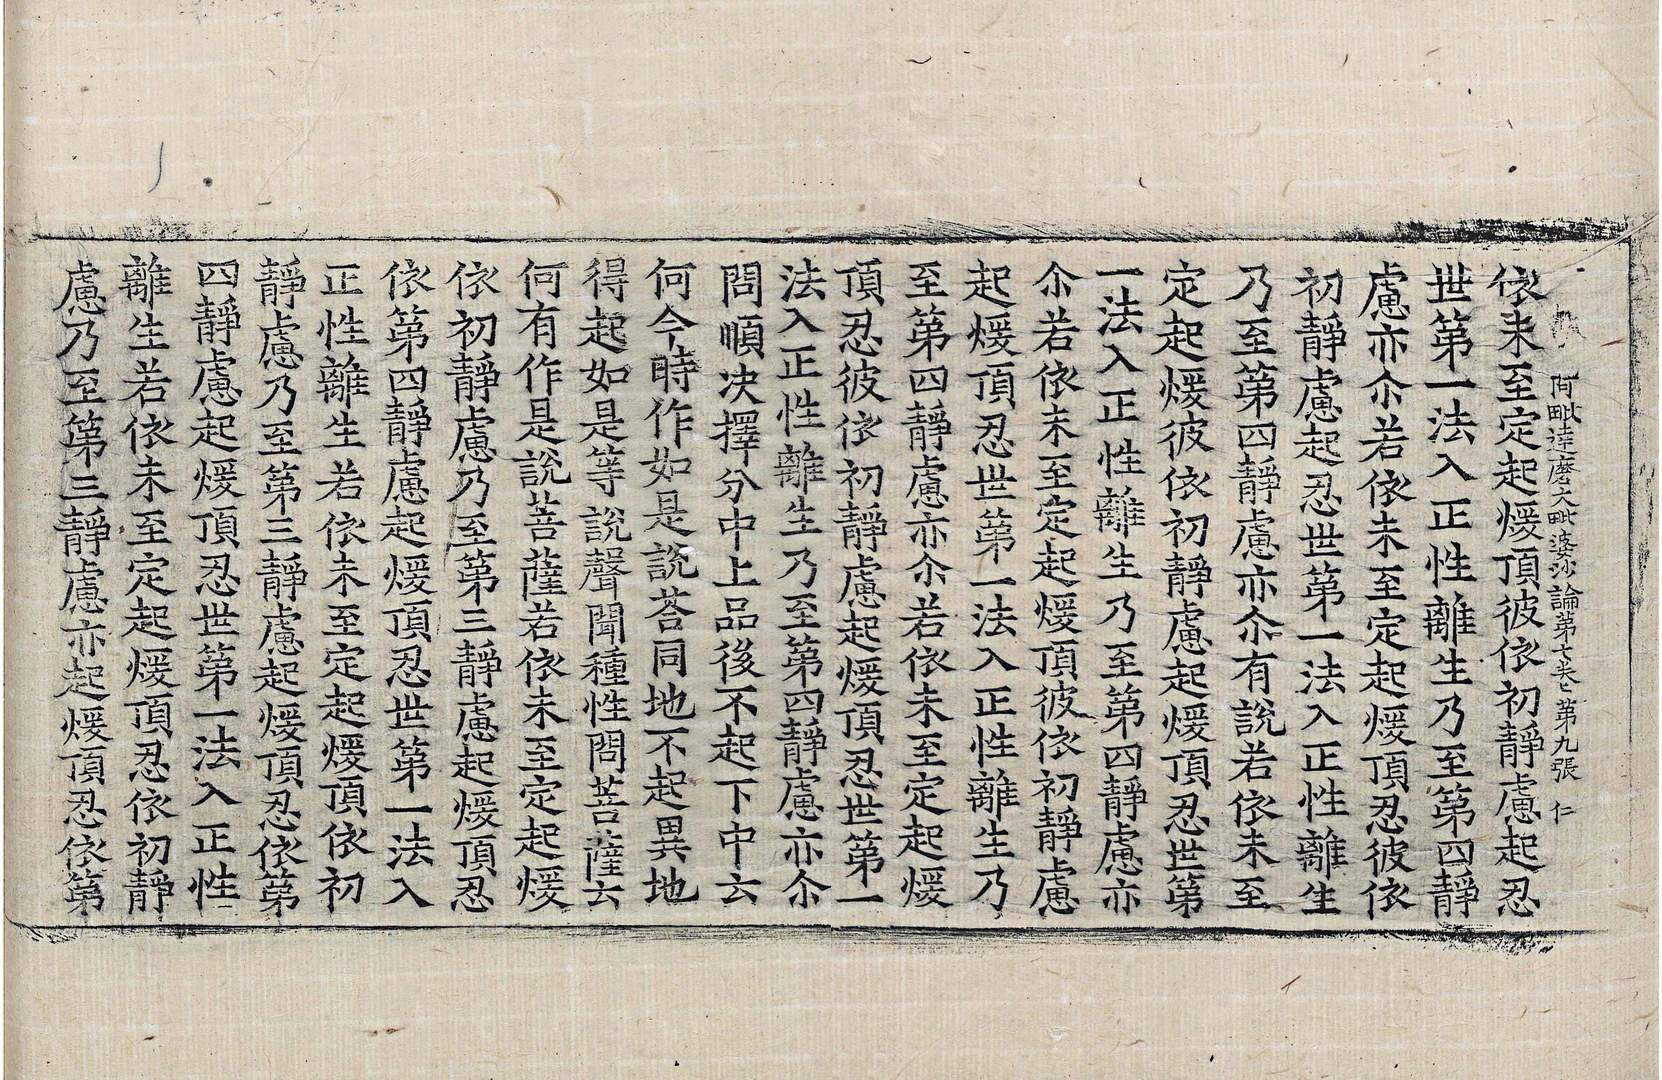 阿毗達磨大毗婆沙論第七 第九張 仁
依未至定起煖頂彼依初靜慮起忍
世第一法入正性離生乃至第四靜
慮亦尒若依未至定起煖頂忍彼依
初靜慮起忍世第一法入正性離生
乃至第四靜慮亦尒有說若依未至
定起煖彼依初靜慮起煖頂忍世第
一法入正性離生乃至第四靜慮亦
尒若依未至定起煖頂彼依初靜慮
起煖頂忍世第一法入正性離生乃
至第四靜慮亦尒若依未至定起煖
頂忍彼依初靜慮起煖頂忍世第一
法入正性離生乃至第四靜慮亦尒
問順决擇分中上品後不起下中云
何今時作如是說荅同地不起異地
得起如是等說聲聞種性問菩薩云
何有作是說菩薩若依未至定起煖
依初靜慮乃至第三靜慮起煖頂忍
依第四靜慮起煖頂忍世第一法入
正性離生若依未至定起煖頂依初
靜慮乃至第三靜慮起煖頂忍依第
四靜慮起煖頂忍世第一法入正性
離生若依未至定起煖頂忍依初靜
慮乃至第三靜慮亦起煖頂忍依第